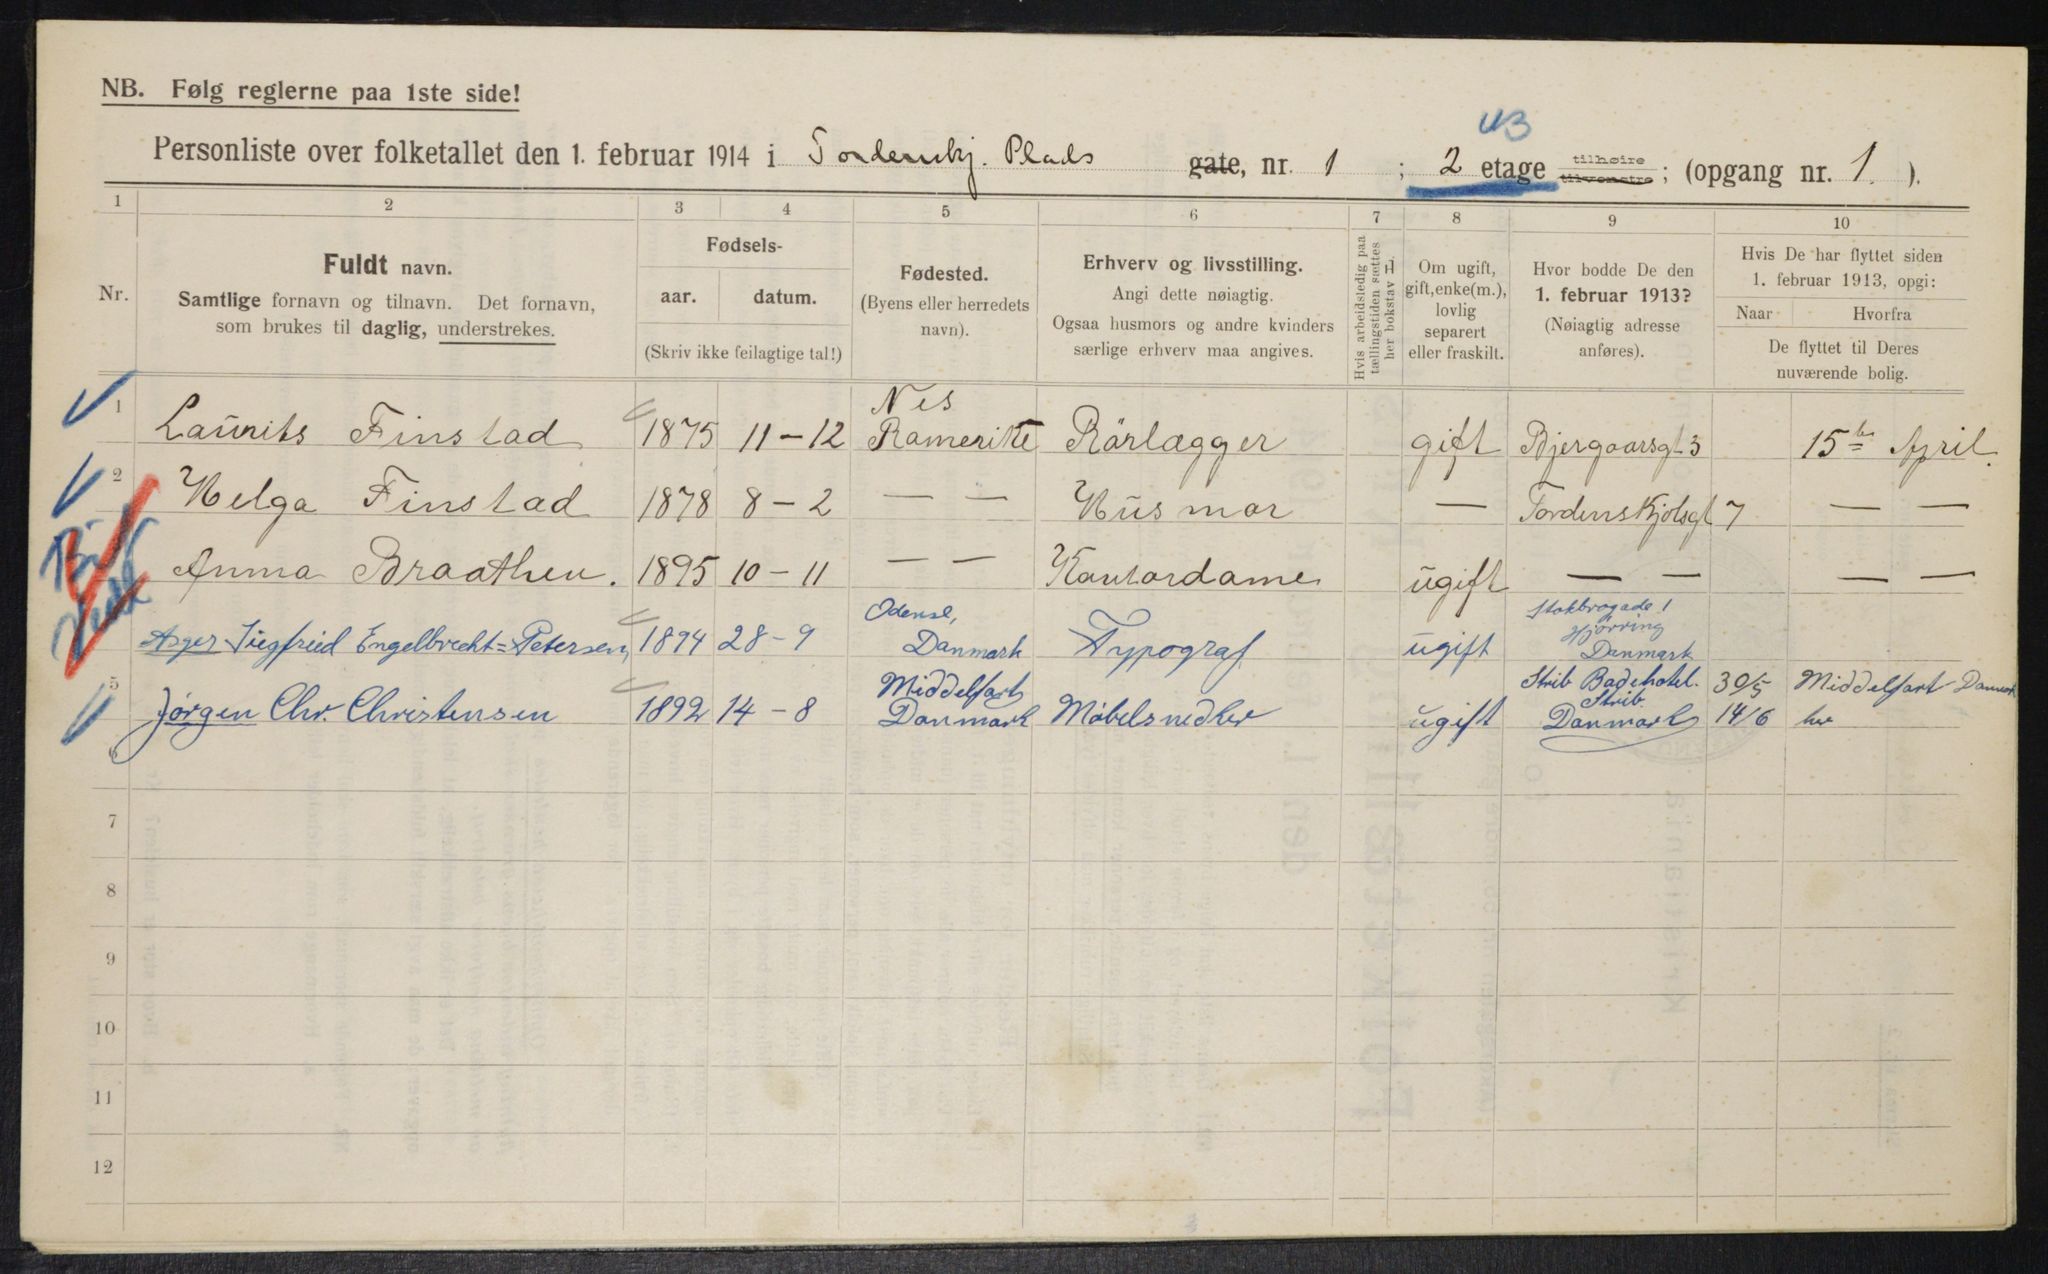 NB. Følg reglerne paa 1ste side!
Personliste over folketallet den 1. februar 1914 i Tordenskj. Plads gate, nr. 1 ; 2 etage tilhøire tilvenstre; (opgang nr. 1. ).
1 2 3 4 5 6 7 8 9 10
Nr.
Fuldt navn.
Samtlige fornavn og tilnavn. Det fornavn,
som brukes til daglig, understrekes.
Fødsels-
aar. datum.
(Skriv ikke feilagtige tal!)
Fødested.
(Byens eller herredets
navn).
Erhverv og livsstilling.
Angi dette nøiagtig.
Ogsaa husmors og andre kvinders
særlige erhverv maa angives.
Hvis arbeidsledig paa
tællingstiden sættes
her bokstav L
Om ugift,
gift, enke(m.),
lovlig
separert
eller fraskilt.
Hvor bodde De den
1. februar 1913?
(Nøiagtig adresse
anføres).
Hvis De har flyttet siden
1. februar 1913, opgi:
Naar Hvorfra
De flyttet til Deres
nuværende bolig.
1 Laurits Finstad 1875 11-12 Nes Romerike Rörlægger gift Bjergaarsgt 3 15de April.
2 Helga Finstad 1878 8-2 — — Husmor — Tordenskjolsgt 7 — —
Anna Braathen. 1895 10-11 — — Kontordame ugift — — — —
Asger Siegfried Engelbrecht=Petersen, 1894 28-9 Odense, Danmark Typograf ugift Stokbrogade 1 Hjørring Danmark
5 Jørgen Chr. Christensen 1892 14-8 Middelfart Danmark Møbelsnedker ugift Strib Badehotel. Strib. Danmark 30/5 Middelfart Danmark
14/6 her
6
7
8
9
10
11
12